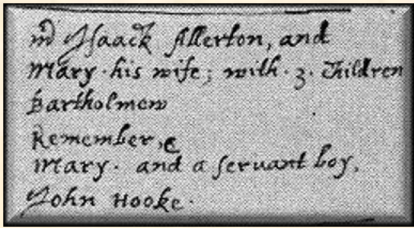 mʳ Isaack Allerton, and
Mary · his wife ; with · 3 · children
Bartholmew
Remember, &
Mary · and a servant boy,
John Hooke ·